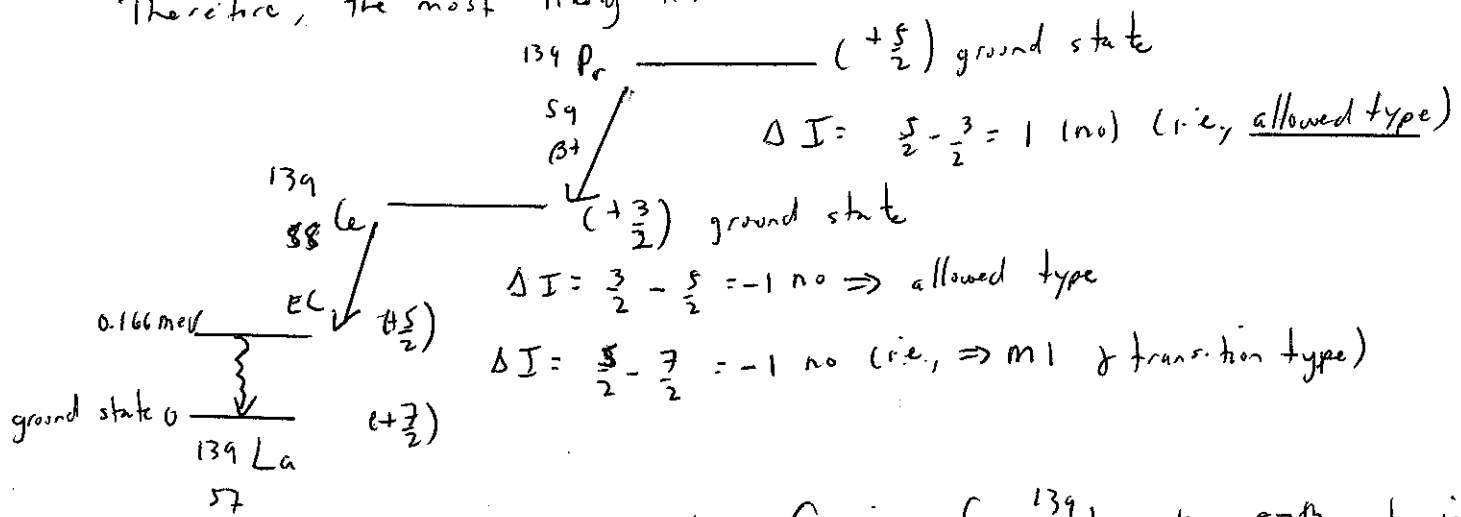 Therefore, the most likely
139 Pr (+5/2) ground state
59
β+
ΔI = 5/2 - 3/2 = 1 (no) (i.e., allowed type)
139
58 Ce (+3/2) ground state
EC
ΔI = 3/2 - 5/2 = -1 no ⇒ allowed type
0.166 meV (+5/2)
ΔI = 5/2 - 7/2 = -1 no (i.e., ⇒ m1 γ transition type)
ground state 0 (+7/2)
139 La
57
139